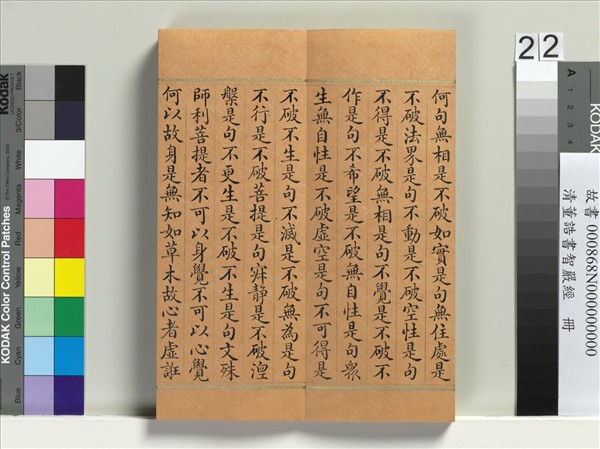 何句無相是不破如實是句無住處是
不破法界是句不動是不破空性是句
不得是不破無相是句不覺是不破不
作是句不希望是不破無自性是句眾
生無自性是不破虛空是句不可得是
不破不生是句不滅是不破無為是句
不行是不破菩提是句寂静是不破涅
槃是句不更生是不破不生是句文殊
師利菩提者不可以身覺不可以心覺
何以故身是無知如草木故心者虛誑
22
A 1 2 3 4
KODAK
故書 000868N000000000
清董誥書智嚴經 冊
Kodak
KODAK Color Control Patches
Black
3/Color
White
Magenta
Red
Yellow
Green
Cyan
Blue